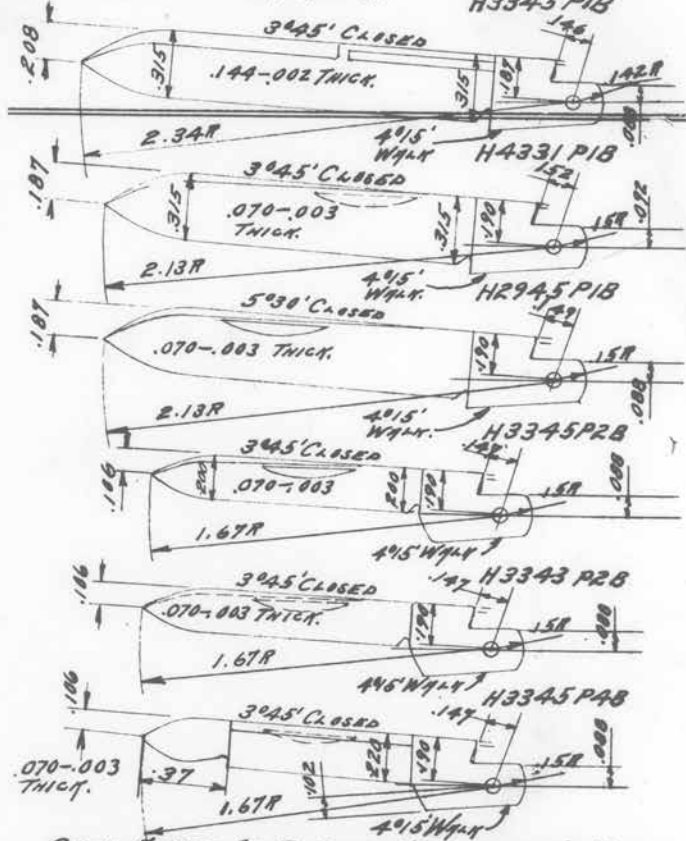 H3345 P1B
.146
3°45' CLOSED
.208
.315
.144-.002 THICK.
.315
.187
.142R
.088
2.34R
4°15'
WALK.
H4331 P1B
.152
3°45' CLOSED
.187
.315
.070-.003
THICK.
.315
.190
.15R
.092
2.13R
4°15'
WALK.
H2945 P1B
.149
5°30' CLOSED
.187
.070-.003 THICK.
.190
.15R
.088
2.13R
4°15'
WALK.
H3345 P2B
.147
3°45' CLOSED
.106
.200
.070-.003
.200
.190
.15R
.088
1.67R
4°15' WALK
H3343 P2B
.147
3°45' CLOSED
.106
.070-.003 THICK.
.190
.15R
.088
1.67R
4°15' WALK
H3345 P4B
.147
3°45' CLOSED
.106
.070-.003
THICK.
.37
.102
.220
.190
.15R
.088
1.67R
4°15' WALK